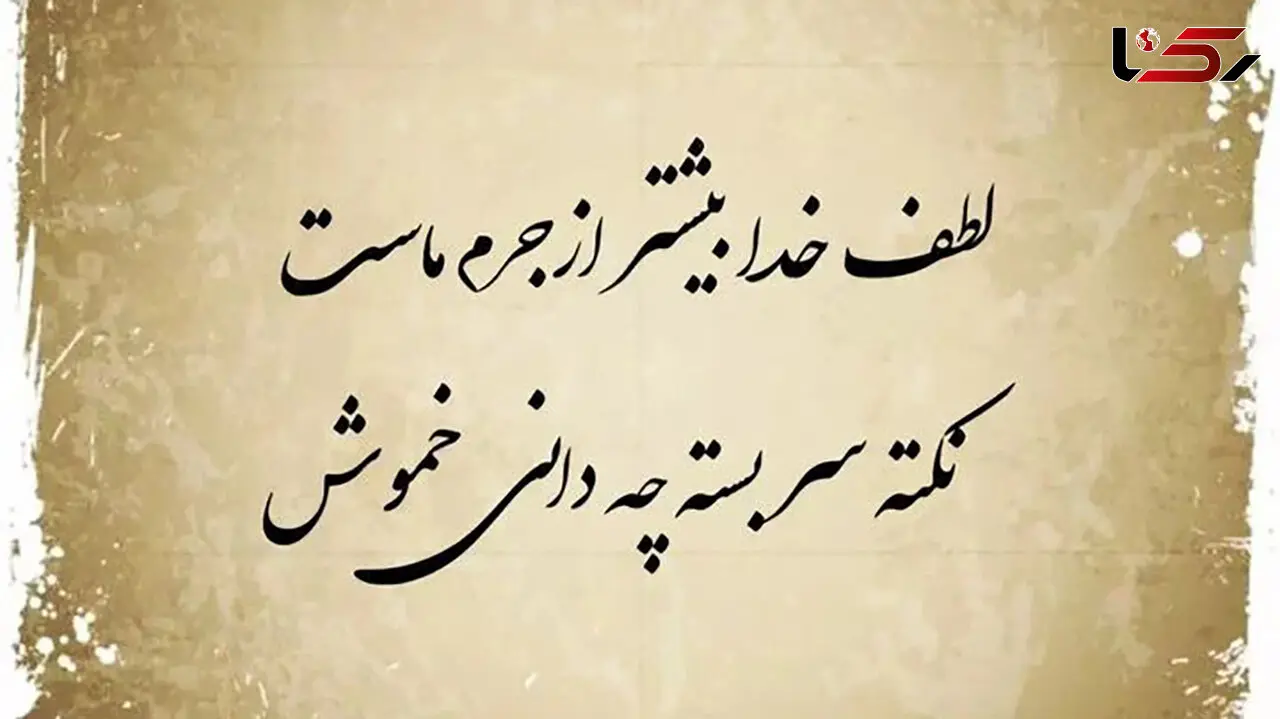 رکنا
لطف خدا بیشتر از جرم ماست
نکته سر بسته چه دانی خموش